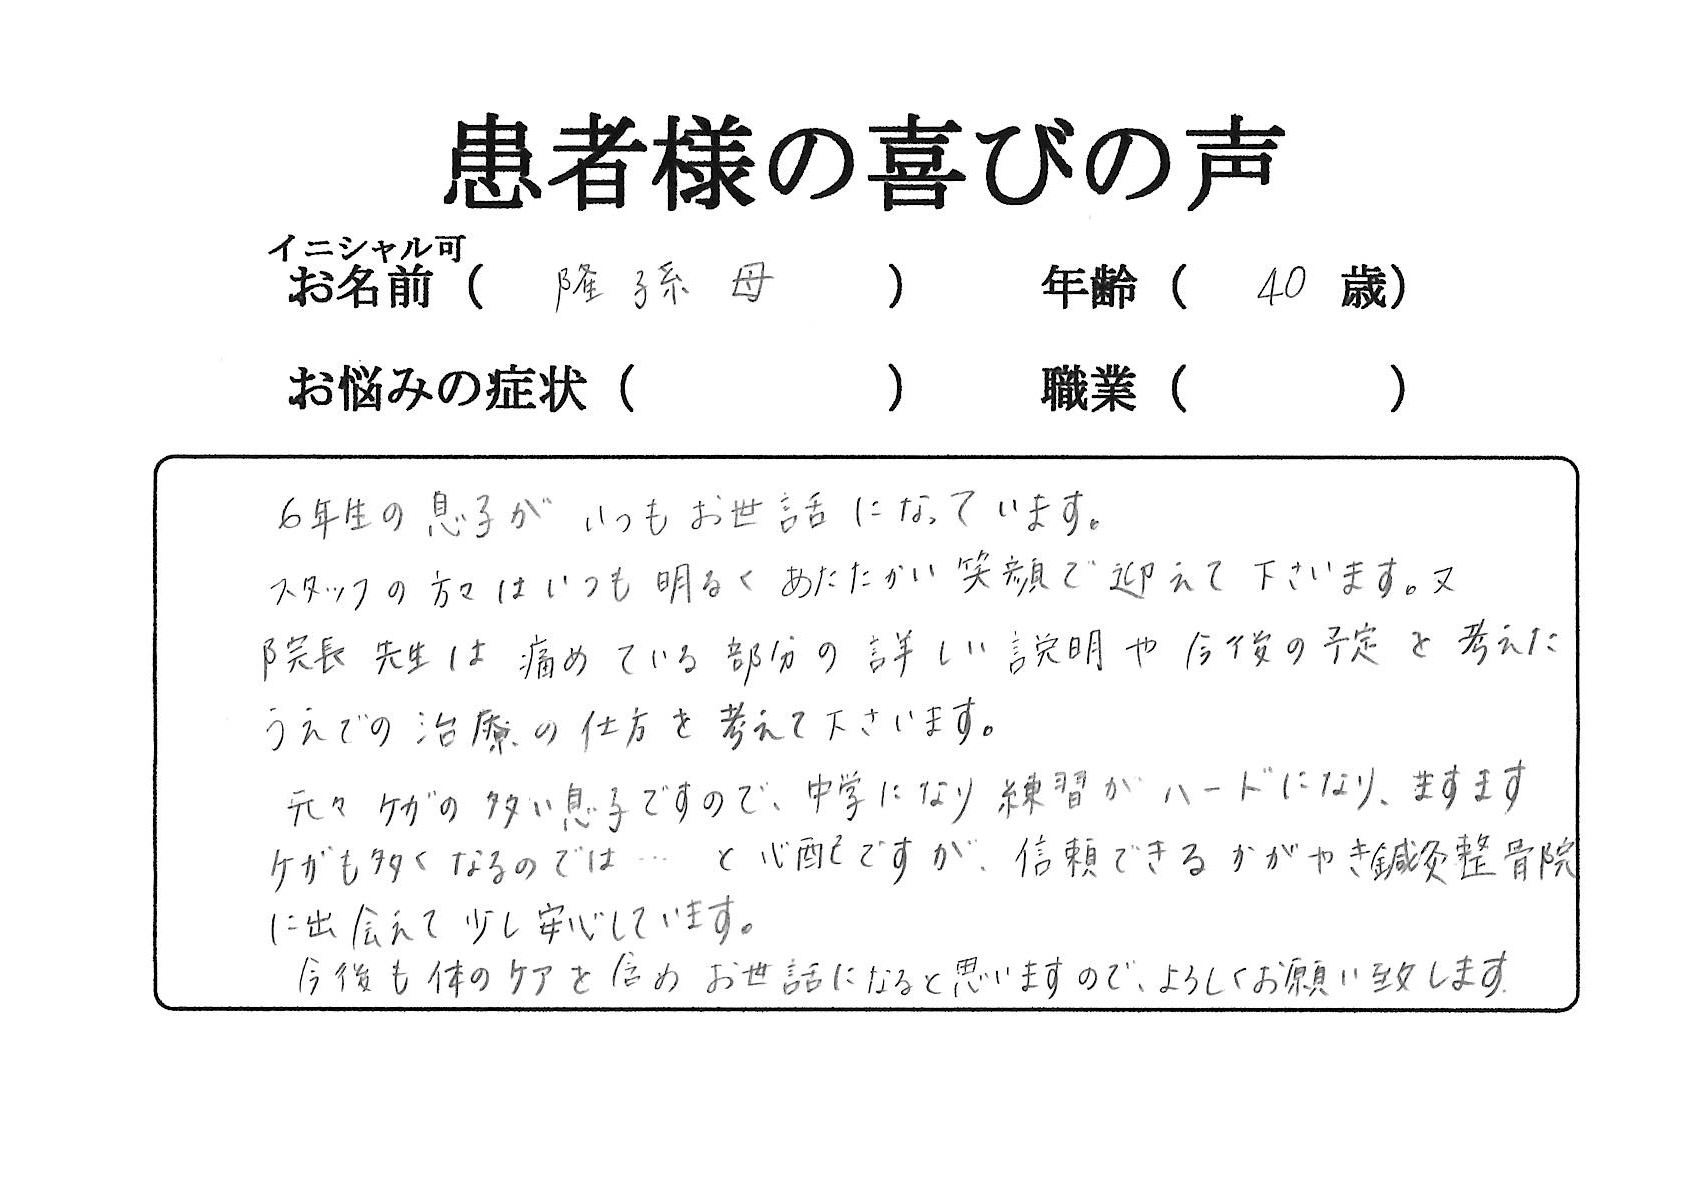 患者様の喜びの声
イニシャル可
お名前（ 隆孫 母 ） 年齢（ 40 歳）
お悩みの症状（ ） 職業（ ）
6年生の息子が いつもお世話になっています。
スタッフの方々はいつも明るくあたたかい笑顔で迎えて下さいます。又
院長先生は痛めている部分の詳しい説明や今後の予定を考えた
うえでの治療の仕方を考えて下さいます。
元々ケガの多い息子ですので、中学になり練習がハードになり、ますます
ケガも多くなるのでは… と心配ですが、信頼できるかがやき鍼灸整骨院
に出会えて少し安心しています。
今後も体のケアを含めお世話になると思いますので、よろしくお願い致します.